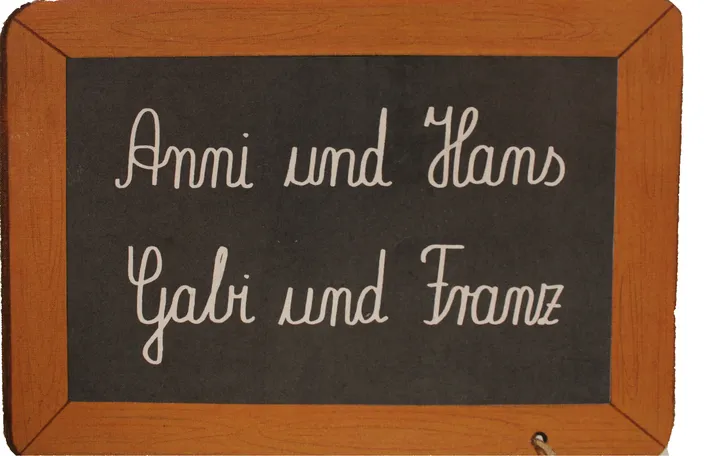 Anni und Hans
Gabi und Franz